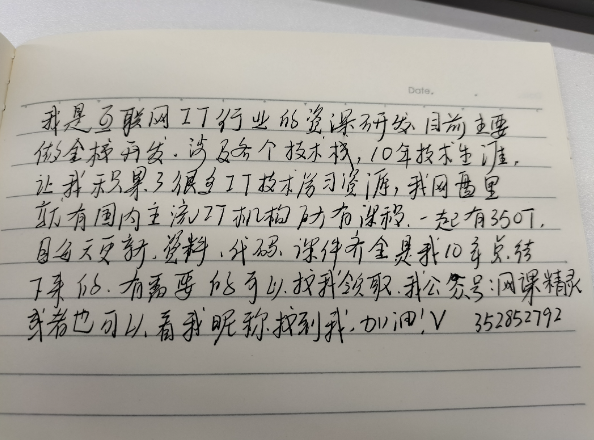 Date.
我是互联网IT行业的资深研发、目前主要
做全栈开发.涉及各个技术栈,10年技术生涯,
让我积累了很多IT技术学习资源,我网盘里
就有国内主流IT机构所有课程.一起有350T,
且每天更新,资料、代码、课件齐全是我10年总结
下来的.有需要的可以找我领取.我公众号:网课精灵
或者也可以看我昵称找到我.加油!V 352852792